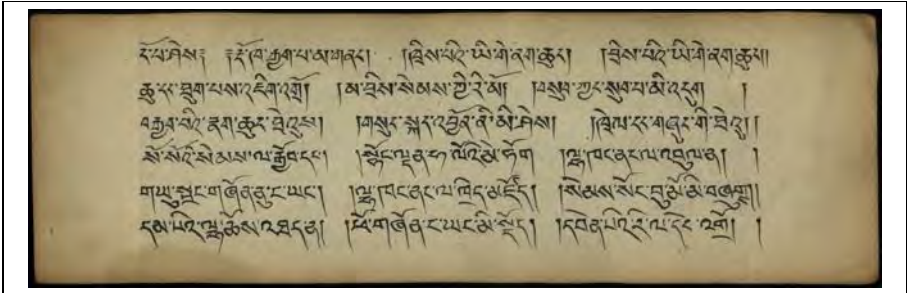 ངོ་པ་ཤེས༔ ༔ངོ་ཁ་རྒྱག་པ་མ་གནང་། །བྲིས་པའི་ཡི་གེ་ནག་ཆུང་། །བྲིས་པའི་ཡི་གེ་ནག་ཆུང་།
ཆུ་དང་ཐྲུག་པས་འཇིག་འགྲོ། །མ་བྲིས་སེམས་ཀྱི་རི་མོ། །བསུབ་ཀྱང་སུབ་པ་མི་འདུག །
བརྒྱབ་པའི་ནག་ཆུང་ཐེའུས། །གསུང་སྐད་འབྱོན་ནི་མི་ཤེས། །ཁྲེལ་དང་གཞུང་གི་ཐེའུ། །
སོ་སོའི་སེམས་ལ་རྒྱོབ་དང་། །སྟོང་ལྡན་ཧ་ལོའི་མེ་ཏོག །ལྷ་ཁང་ནང་ལ་འབུལ་ན། །
གཡུ་སྦྲང་གཞོན་ནུ་ང་ཡང་། །ལྷ་ཁང་ནང་ལ་ཁྲིད་མཛོད། །སེམས་སོང་བུ་མོ་མི་བཞུགས།
དམ་པའི་ལྷ་ཆོས་འཐད་ན། །ཕོ་གཞོན་ང་ཡང་མི་སྡོད། །དབེན་པའི་རི་ལ་དེང་འགྲོ། །